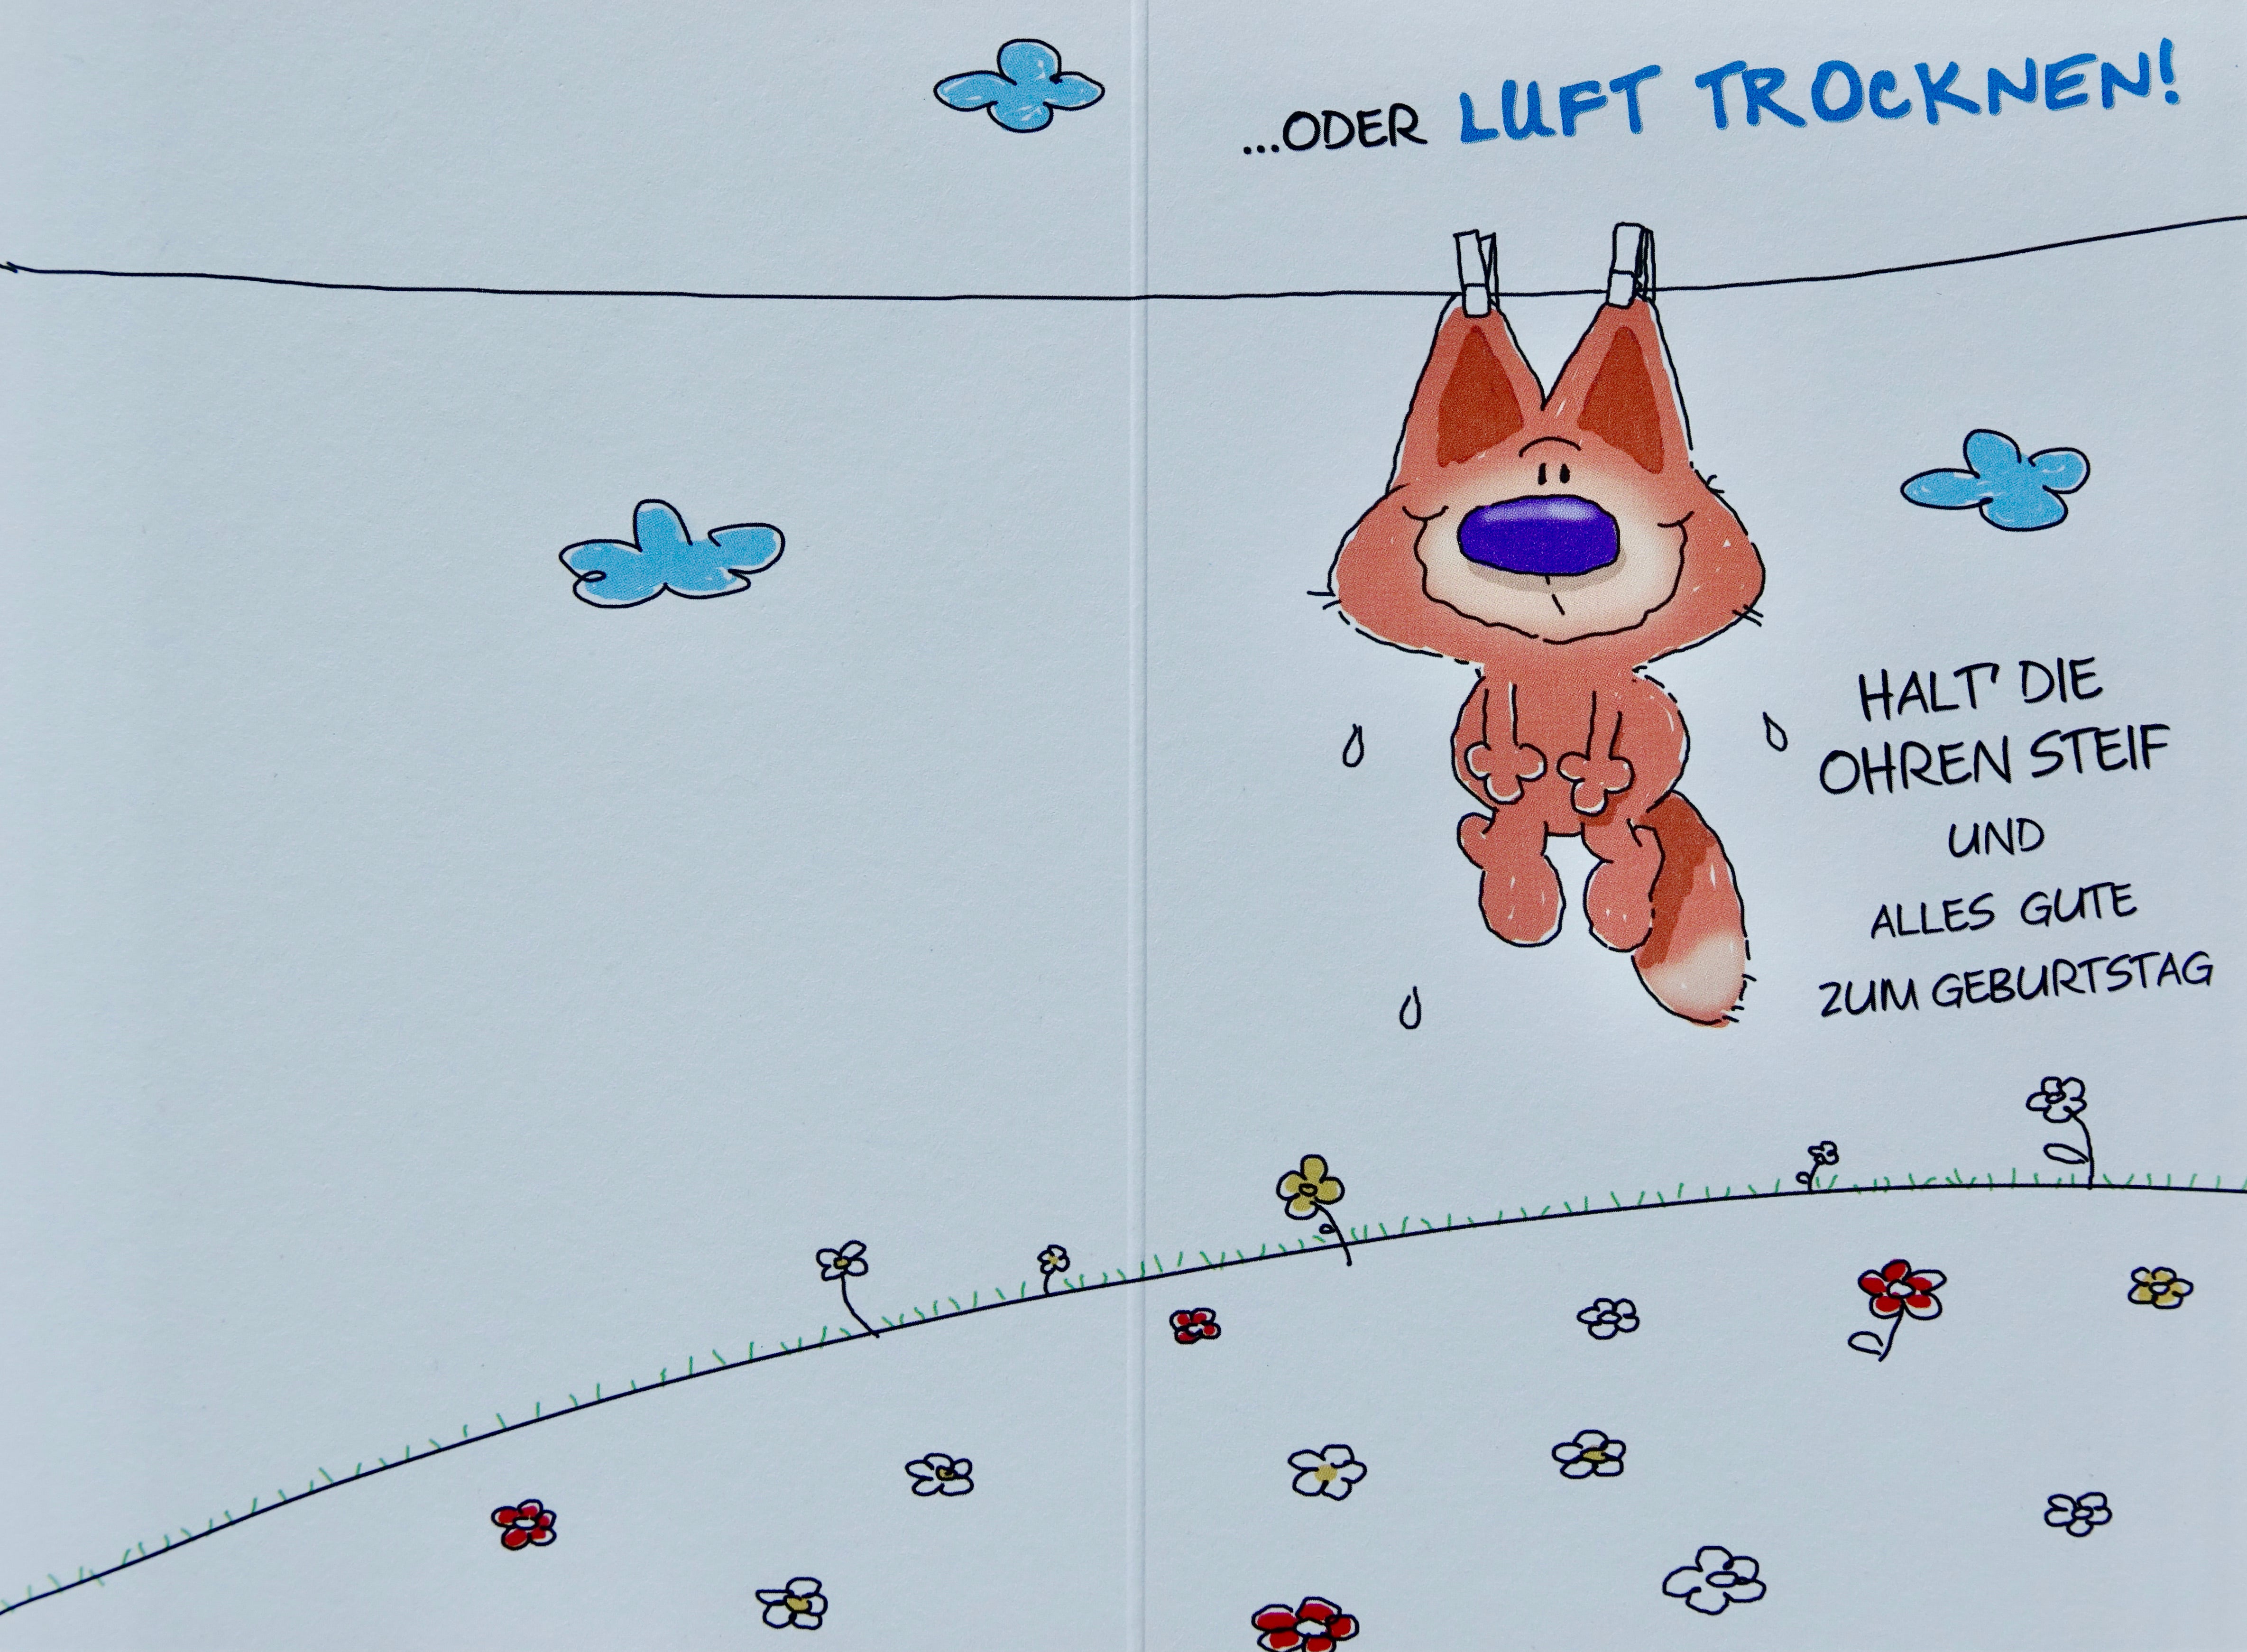 ...ODER LUFT TROCKNEN!
HALT' DIE
OHREN STEIF
UND
ALLES GUTE
ZUM GEBURTSTAG